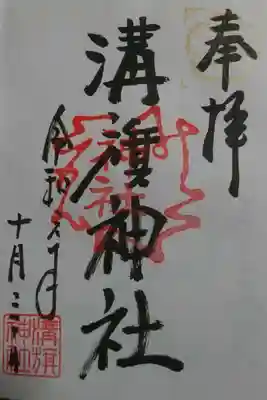 奉拝
溝旗神社
令和六年
十月二十日
溝旗
神社